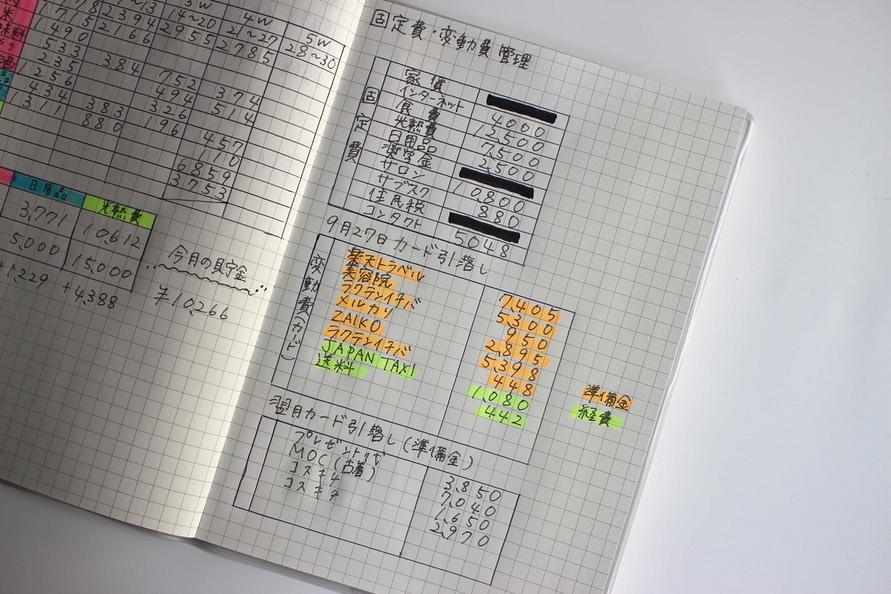 3W 4W 5W
14~20 21~27 28~30
2394 2955 2785
490 2166
533
235 384 752 374
256 494 514
434 383 326
311 880 196 457
110
6859
3753
日用品 光熱費
3,771 10,612
5,000 15,000
1,229 +4,388
今月の貯金
¥10,266
固定費・変動費管理
固定費
家賃
インターネット 4000
食費 12500
光熱費 7500
日用品 2500
奨学金
サロン 10,800
サブスク 880
住民税
コンタクト 5048
9月27日カード引落し
変動費(カード)
楽天トラベル 7,405
美容院 5,300
ラクテンイチバ 950
メルカリ 2,895
ZAIKO 5,398
ラクテンイチバ 448
JAPAN TAXI 1,080
送料 442
準備金
経費
翌月カード引落し(準備金)
プレゼント 3,850
MOC(古着) 7,040
コスキチ 1,650
コスキチ 2,970